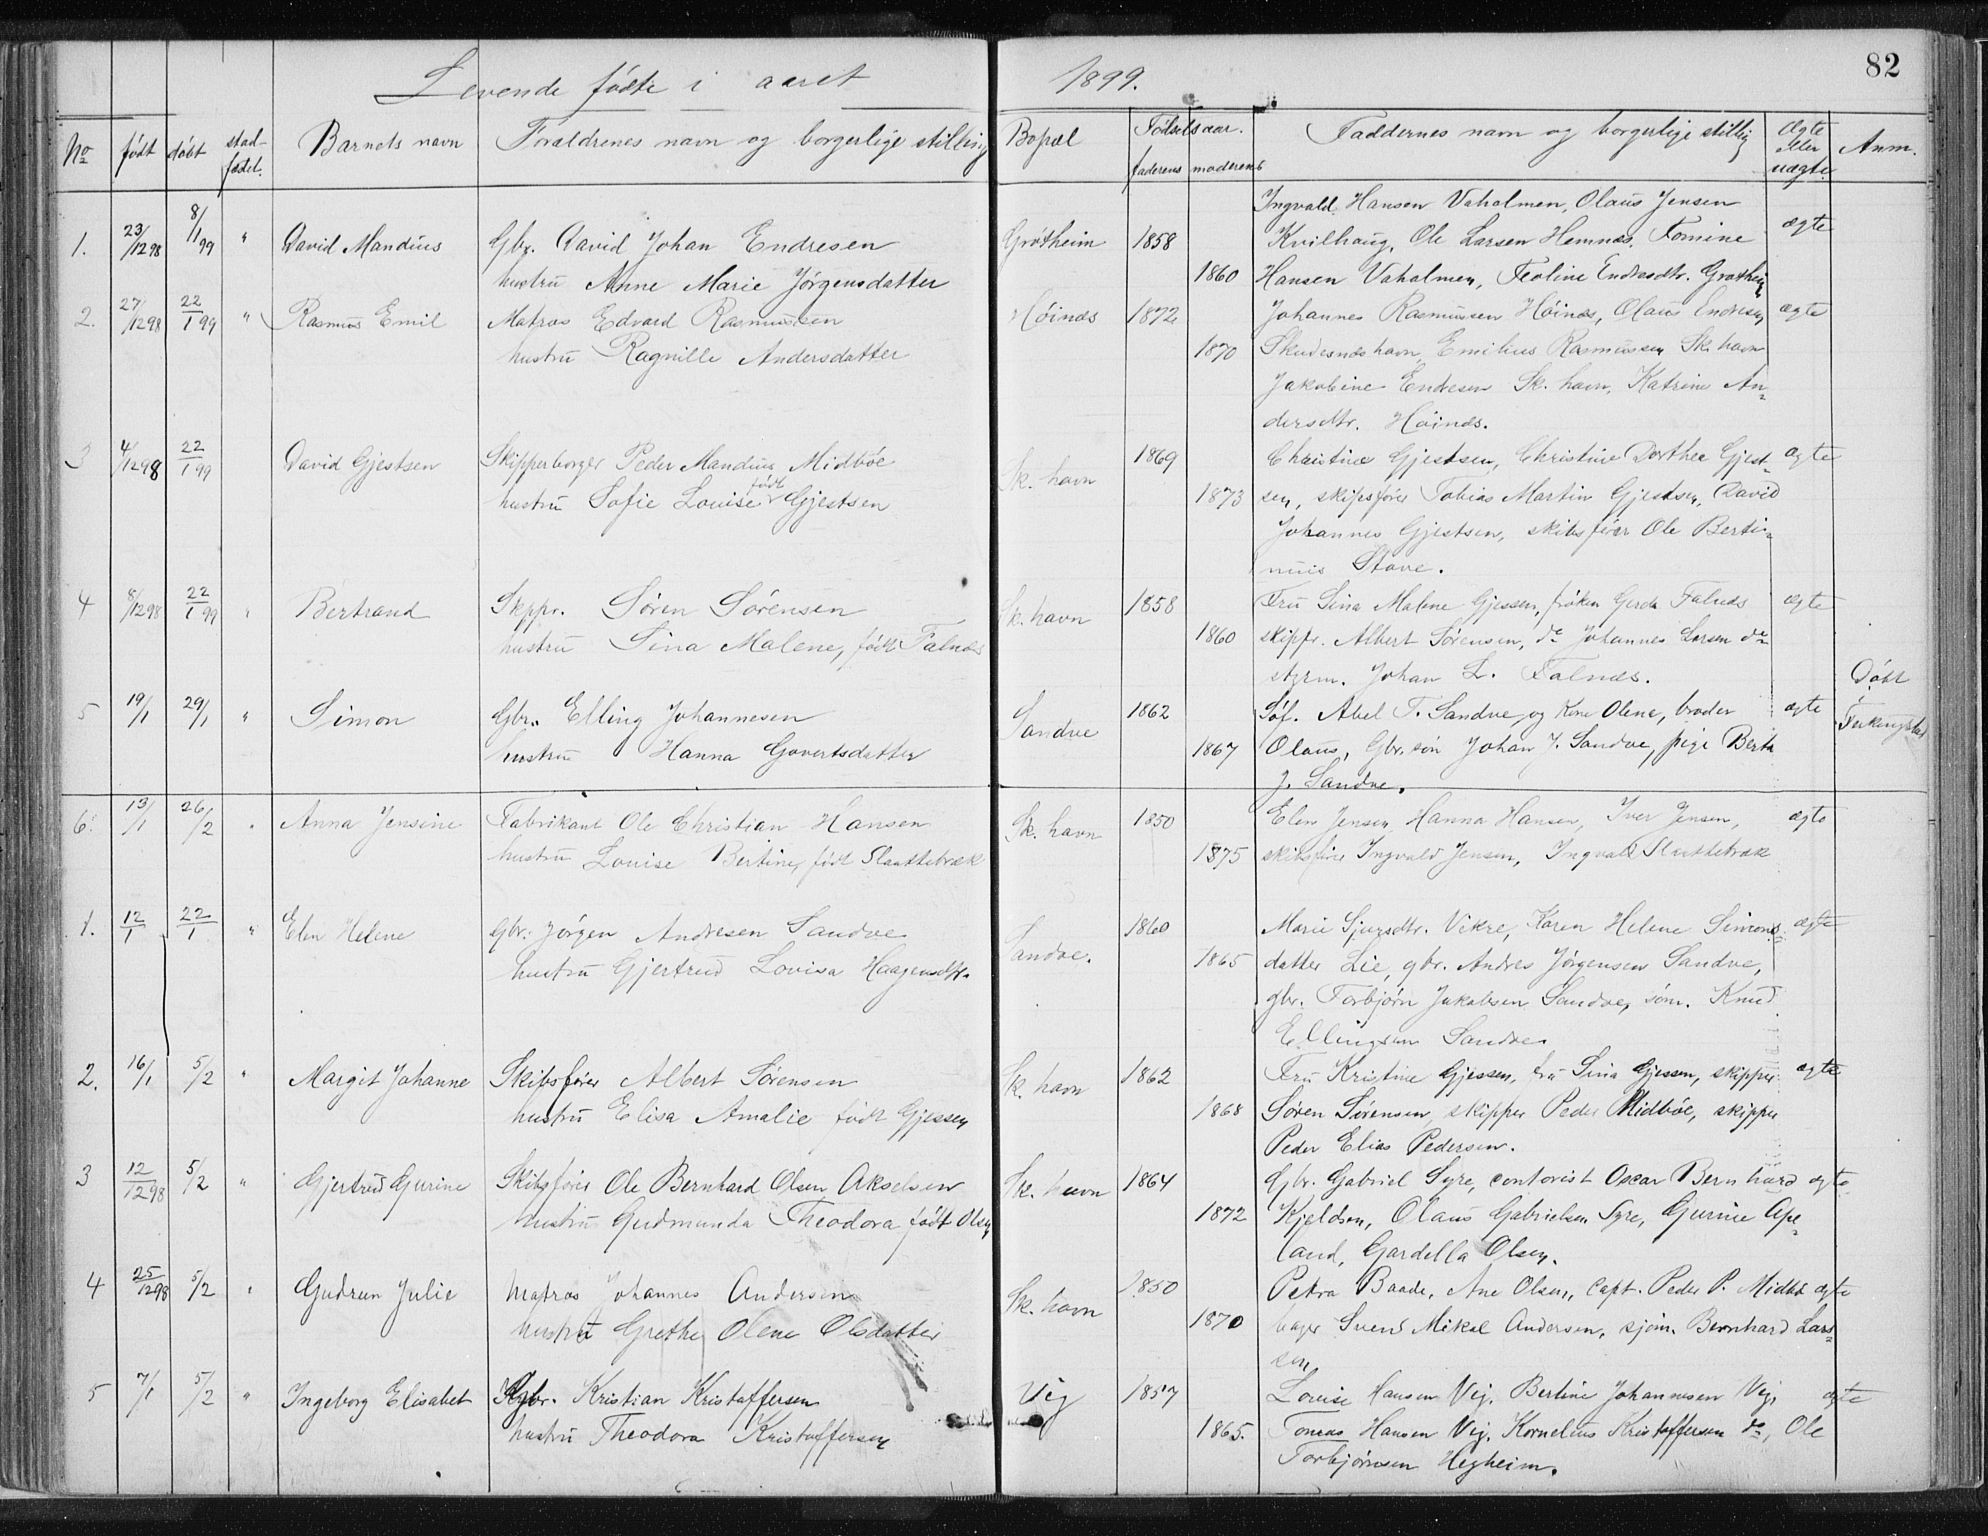 82
Levende fødte i aaret 1899.
No født døbt stad-fædet. Barnets navn Foraldrenes navn og borgerlige stilling Bopæl Fødselsaar. faderens moderens Faddernes navn og borgerlige stillig Ægte eller uægte Anm.
Ingvald Hansen Vaholmen, Olaus Jensen
1. 23/12 98 8/1 99 " David Mandius Gbr. David Johan Endresen Grøtheim 1858 Kvilhaug, Ole Larsen Hemnæs, Tomine ægte
hustru Anne Marie Jørgensdatter 1860 Hansen Vaholmen, Teoline Endresdtr. Grøtheim
2. 27/12 98 22/1 99 " Rasmus Emil Matros Edvard Rasmussen Høinæs 1872 Johannes Rasmussen Høinæs, Olaus Endresen ægte
hustru Ragnille Andersdatter 1870 Skudesnæshavn, Emilius Rasmussen Sk. havn
Jakobine Endresen Sk. havn, Katrine An-
dersdtr. Høinæs.
3 4/12 98 22/1 99 David Gjestsen Skipperborger Peder Mandius Midbøe Sk. havn 1869 Christine Gjestsen, Christine Dorthea Gjest- ægte
hustru Sofie Louise født Gjestsen 1873 sen, skipsfører Tobias Martin Gjestsen, David
Johannes Gjestsen, skibsfører Ole Berti-
nius Stave.
4 8/12 98 22/1 99 " Bertrand Skppr. Søren Sørensen Sk. havn 1858 Fru Sina Malene Gjessen, frøken Gerda Falnæs ægte
hustru Sina Malene, født Falnæs 1860 skippr. Albert Sørensen, do Johannes Larsen do
styrm. Johan L. Falnæs. Døbt
5 19/1 29/1 " Simon Gbr. Elling Johannesen Sandve 1862 Søf. Abel T. Sandve og Kone Olene, broder ægte i Ferkingstad
hustru Hanna Govertsdatter 1867 Olaus, Gbr. søn Johan J. Sandve, pige Berta
J. Sandve.
6. 13/1 26/2 " Anna Jensine Fabrikant Ole Christian Hansen Sk. havn 1850 Elen Jensen, Hanna Hansen, Iver Jensen, ægte
hustru Louise Bertine, født Slaattebræk 1875 skibsfører Ingvald Jensen, Ingvald Slaattebræk
1. 12/1 22/1 " Elen Helene Gbr. Jørgen Andresen Sandve Sandve. 1860 Marie Sjursdtr. Vikre, Karen Helene Simons- ægte
hustru Gjertrud Lovisa Haagensdtr. 1865 datter Lie, gbr. Andres Jørgensen Sandve,
gbr. Torbjørn Jakobsen Sandve, søm. Knud
Ellingsen Sandve.
2. 16/1 5/2 " Margit Johanne Skibsfører Albert Sørensen Sk. havn 1862 Fru Kristine Gjessen, fru Sina Gjessen, skipper ægte
hustru Elisa Amalie født Gjessen 1868 Søren Sørensen, skipper Peder Midbøe, skipper
Peder Elias Pedersen.
3 12/12 98 5/2 " Gjertrud Gurine Skibsfører Ole Bernhard Olsen Akselsen Sk. havn 1864 Gbr. Gabriel Syre, contorist Oscar Bernhard ægte
hustru Gudmunda Theodora født Olsen 1872 Kjeldsen, Olaus Gabrielsen Syre, Gurine Ape-
land, Gardella Olsen.
4 25/12 98 5/2 " Gudrun Julie Matros Johannes Andersen Sk. havn 1850 Petra Baade, Ane Olsen, Capt. Peder P. Midbø ægte
hustru Grethe Olene Olsdatter 1870 bager Svend Mikal Andersen, sjøm. Bernhard Lars-
sen
5 7/1 5/2 " Ingeborg Elisabet Gbr. Kristian Kristoffersen Vig 1857 Lovise Hansen Vig, Bertine Johannesen Vig, ægte
hustru Theodora Kristoffersen 1865. Tomas Hansen Vig, Kornelius Kristoffersen do, Ole
Torbjørnsen Hegheim.